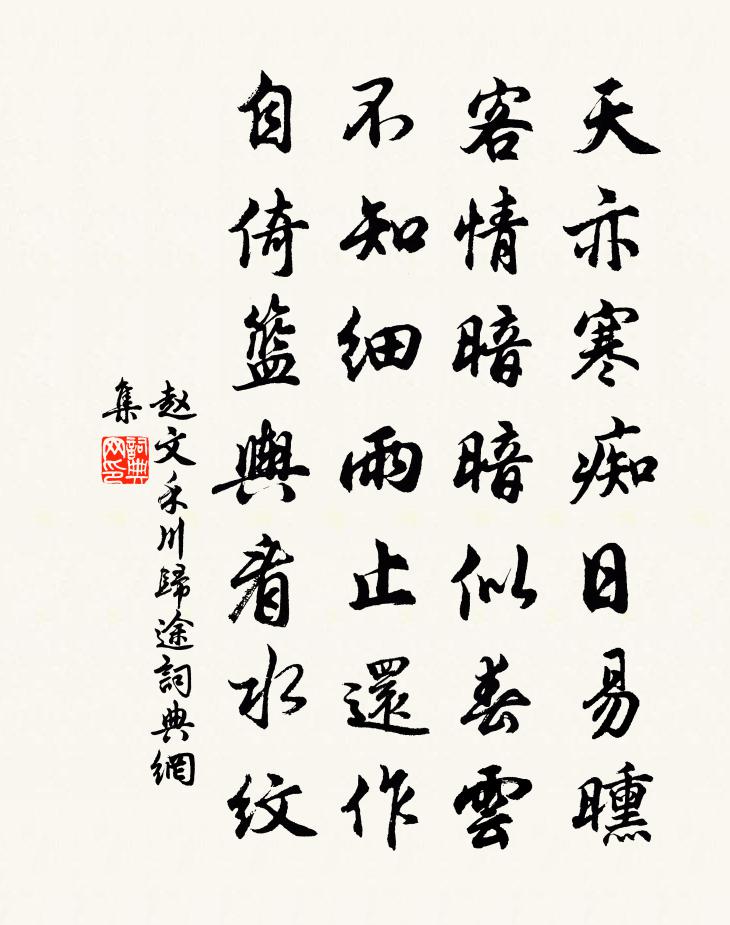 天亦寒痴日易曛
客情暗暗似春雲
不知細雨止還作
自倚籃輿看水紋
赵文禾川歸途詞典網
集
詞典
网印